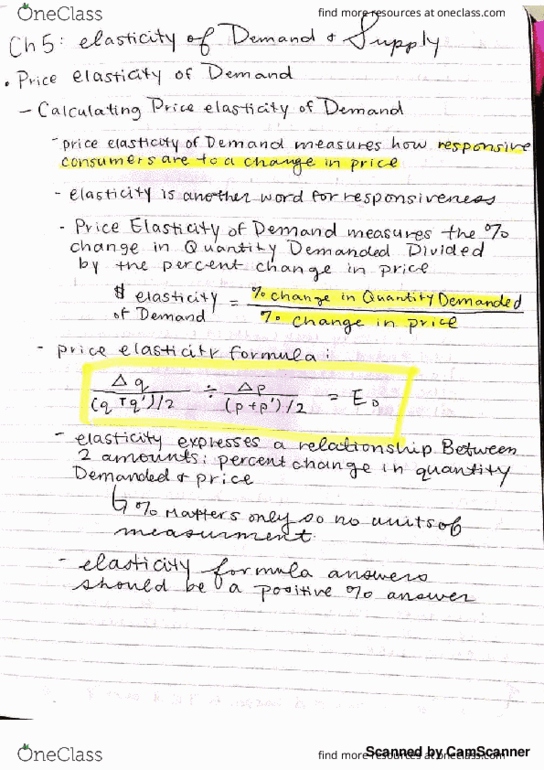 OneClass
find more resources at oneclass.com
Ch 5: elasticity of Demand & Supply
• Price elasticity of Demand
- Calculating Price elasticity of Demand
- price elasticity of Demand measures how responsive
consumers are to a change in price
- elasticity is another word for responsiveness
- Price Elasticity of Demand measures the %
change in Quantity Demanded Divided
by the percent change in price
$ elasticity of Demand = % change in Quantity Demanded / % change in price
- price elasticity formula:
Δq / (q+q')/2 ÷ Δp / (p+p')/2 = E D
- elasticity expresses a relationship Between
2 amounts: percent change in quantity
Demanded & price
↳ % matters only so no units of
measurment.
- elasticity formula answers
should be a positive % answer
OneClass
find more resources at oneclass.com
Scanned by CamScanner